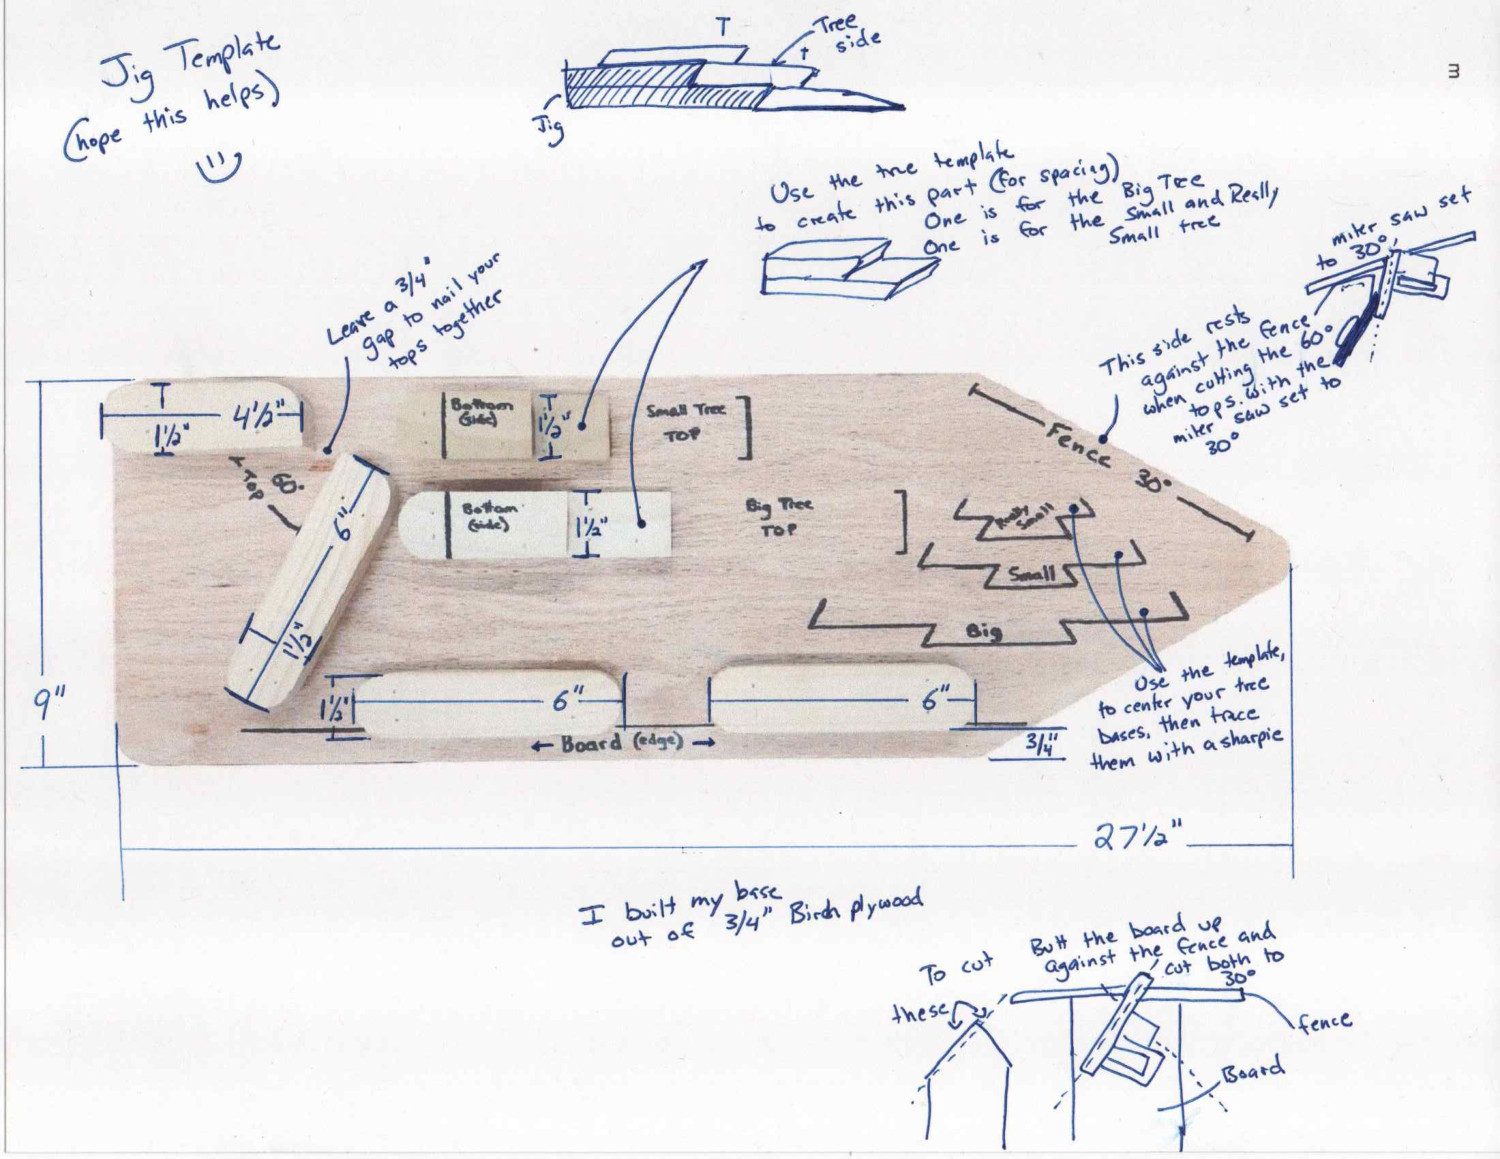 Jig Template
(hope this helps)
T
Tree
side
Jig
3
Use the tree template
to create this part (for spacing)
One is for the Big Tree
One is for the Small and Really
Small tree
miter saw set
to 30°
This side rests
against the fence
when cutting the 60°
tops with the
miter saw set to
30°
Leave a 3/4"
gap to nail your
tops together
4 1/2"
1 1/2"
Bottom
(side)
1 1/2"
Small Tree
TOP
Fence
30°
TOP
6"
1 1/2"
Bottom
(side)
1 1/2"
Big Tree
TOP
Really
Small
Small
Big
9"
1 1/2"
6"
6"
← Board (edge) →
3/4"
Use the template,
to center your tree
bases, then trace
them with a sharpie
27 1/2"
I built my base
out of 3/4" Birch plywood
To cut
these
Butt the board up
against the fence and
cut both to
30°
fence
Board